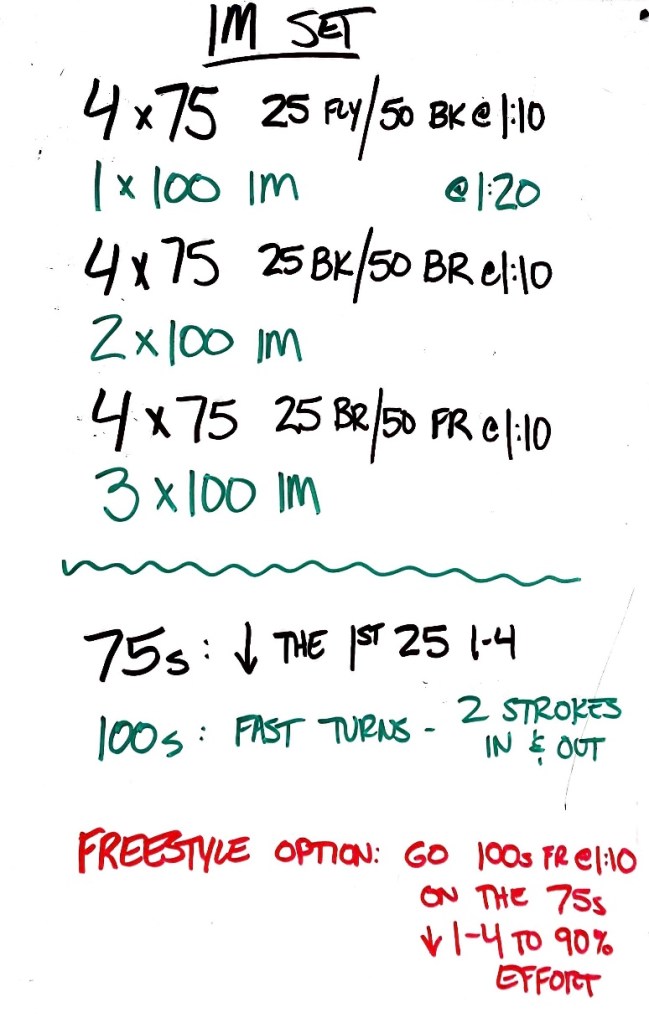 IM SET
4 x 75 25 FLY/50 BK @ 1:10
1 x 100 IM @ 1:20
4 x 75 25 BK/50 BR @ 1:10
2 x 100 IM
4 x 75 25 BR/50 FR @ 1:10
3 x 100 IM
75s: ↓ THE 1ST 25 1-4
100s: FAST TURNS - 2 STROKES
IN & OUT
FREESTYLE OPTION: GO 100s FR @ 1:10
ON THE 75s
↓ 1-4 TO 90%
EFFORT